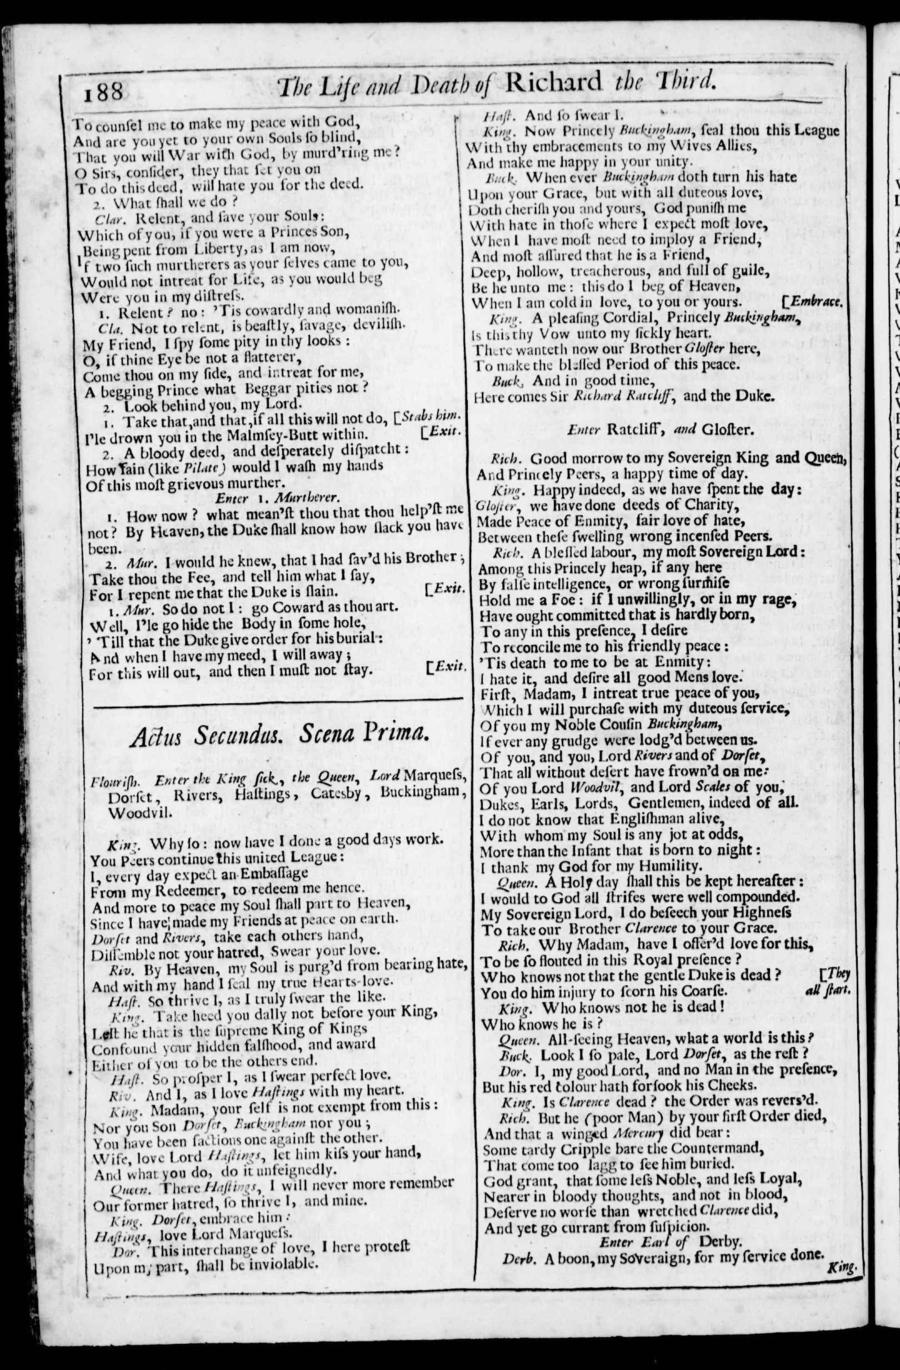 188 The Life and Death of Richard the Third.
To counsel me to make my peace with God,
And are you yet to your own Souls so blind,
That you will War with God, by murd'ring me?
O Sirs, consider, they that set you on
To do this deed, will hate you for the deed.
2. What shall we do?
Clar. Relent, and save your Souls:
Which of you, if you were a Princes Son,
Being pent from Liberty, as I am now,
If two such murtherers as your selves came to you,
Would not intreat for Life, as you would beg
Were you in my distress.
1. Relent? no: 'Tis cowardly and womanish.
Cla. Not to relent, is beastly, savage, devilish.
My Friend, I spy some pity in thy looks:
O, if thine Eye be not a flatterer,
Come thou on my side, and intreat for me,
A begging Prince what Beggar pities not?
2. Look behind you, my Lord.
1. Take that, and that, if all this will not do, [Stabs him.
I'le drown you in the Malmsey-Butt within. [Exit.
2. A bloody deed, and desperately dispatcht:
How fain (like Pilate) would I wash my hands
Of this most grievous murther.
Enter 1. Murtherer.
1. How now? what mean'st thou that thou help'st me
not? By Heaven, the Duke shall know how slack you have
been.
2. Mur. I would he knew, that I had sav'd his Brother;
Take thou the Fee, and tell him what I say,
For I repent me that the Duke is slain. [Exit.
1. Mur. So do not I: go Coward as thou art.
Well, I'le go hide the Body in some hole,
'Till that the Duke give order for his burial:
And when I have my meed, I will away;
For this will out, and then I must not stay. [Exit.
Actus Secundus. Scena Prima.
Flourish. Enter the King sick, the Queen, Lord Marquess,
Dorset, Rivers, Hastings, Catesby, Buckingham,
Woodvil.
King. Why so: now have I done a good days work.
You Peers continue this united League:
I, every day expect an Embassage
From my Redeemer, to redeem me hence.
And more to peace my Soul shall part to Heaven,
Since I have made my Friends at peace on earth.
Dorset and Rivers, take each others hand,
Dissemble not your hatred, Swear your love.
Riv. By Heaven, my Soul is purg'd from bearing hate,
And with my hand I seal my true Hearts-love.
Hast. So thrive I, as I truly swear the like.
King. Take heed you dally not before your King,
Lest he that is the supreme King of Kings
Confound your hidden falshood, and award
Either of you to be the others end.
Hast. So prosper I, as I swear perfect love.
Riv. And I, as I love Hastings with my heart.
King. Madam, your self is not exempt from this:
Nor you Son Dorset, Buckingham nor you;
You have been factious one against the other.
Wife, love Lord Hastings, let him kiss your hand,
And what you do, do it unfeignedly.
Queen. There Hastings, I will never more remember
Our former hatred, so thrive I, and mine.
King. Dorset, embrace him:
Hastings, love Lord Marquess.
Dor. This interchange of love, I here protest
Upon my part, shall be inviolable.
Hast. And so swear I.
King. Now Princely Buckingham, seal thou this League
With thy embracements to my Wives Allies,
And make me happy in your unity.
Buck. When ever Buckingham doth turn his hate
Upon your Grace, but with all duteous love,
Doth cherish you and yours, God punish me
With hate in those where I expect most love,
When I have most need to imploy a Friend,
And most assured that he is a Friend,
Deep, hollow, treacherous, and full of guile,
Be he unto me: this do I beg of Heaven,
When I am cold in love, to you or yours. [Embrace.
King. A pleasing Cordial, Princely Buckingham,
Is this thy Vow unto my sickly heart.
There wanteth now our Brother Gloster here,
To make the blessed Period of this peace.
Buck. And in good time,
Here comes Sir Richard Ratcliff, and the Duke.
Enter Ratcliff, and Gloster.
Rich. Good morrow to my Sovereign King and Queen,
And Princely Peers, a happy time of day.
King. Happy indeed, as we have spent the day:
Gloster, we have done deeds of Charity,
Made Peace of Enmity, fair love of hate,
Between these swelling wrong incensed Peers.
Rich. A blessed labour, my most Sovereign Lord:
Among this Princely heap, if any here
By false intelligence, or wrong surmise
Hold me a Foe: if I unwillingly, or in my rage,
Have ought committed that is hardly born,
To any in this presence, I desire
To reconcile me to his friendly peace:
'Tis death to me to be at Enmity:
I hate it, and desire all good Mens love.
First, Madam, I intreat true peace of you,
Which I will purchase with my duteous service,
Of you my Noble Cousin Buckingham,
If ever any grudge were lodg'd between us.
Of you, and you, Lord Rivers and of Dorset,
That all without desert have frown'd on me:
Of you Lord Woodvil, and Lord Scales of you,
Dukes, Earls, Lords, Gentlemen, indeed of all.
I do not know that Englishman alive,
With whom my Soul is any jot at odds,
More than the Infant that is born to night:
I thank my God for my Humility.
Queen. A Holy day shall this be kept hereafter:
I would to God all strifes were well compounded.
My Sovereign Lord, I do beseech your Highness
To take our Brother Clarence to your Grace.
Rich. Why Madam, have I offer'd love for this,
To be so flouted in this Royal presence?
Who knows not that the gentle Duke is dead? [They
You do him injury to scorn his Coarse. all start.
King. Who knows not he is dead!
Who knows he is?
Queen. All-seeing Heaven, what a world is this?
Buck. Look I so pale, Lord Dorset, as the rest?
Dor. I, my good Lord, and no Man in the presence,
But his red colour hath forsook his Cheeks.
King. Is Clarence dead? the Order was revers'd.
Rich. But he (poor Man) by your first Order died,
And that a winged Mercury did bear:
Some tardy Cripple bare the Countermand,
That come too lagg to see him buried.
God grant, that some less Noble, and less Loyal,
Nearer in bloody thoughts, and not in blood,
Deserve no worse than wretched Clarence did,
And yet go currant from suspicion.
Enter Earl of Derby.
Derb. A boon, my Soveraign, for my service done.
King.